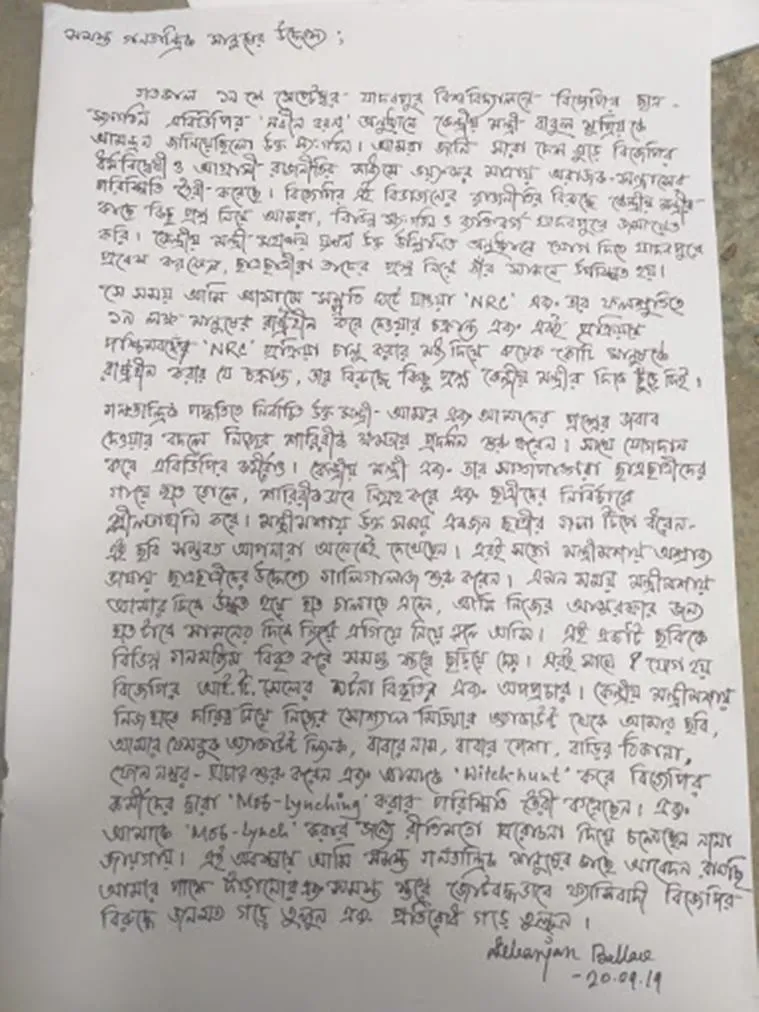 সমস্ত গনতান্ত্রিক মানুষের উদ্দেশ্যে ;
গতকাল ১৯ শে সেপ্টেম্বর যাদবপুর বিশ্ববিদ্যালয়ে বিজেপির ছাত্র-
সংগঠন এবিভিপির 'নবীন বরণ' অনুষ্ঠানে কেন্দ্রীয় মন্ত্রী বাবুল সুপ্রিয়কে
আমন্ত্রন জানিয়েছিলো উক্ত সংগঠন। আমরা জানি সারা দেশ জুড়ে বিজেপির
ধর্মবিদ্বেষী ও আগ্রাসী রাজনীতির মাধ্যমে ভয়ংকর মাত্রায় অরাজক-সন্ত্রাসের
পরিস্থিতি তৈরী করেছে। বিজেপির এই বিভাজনের রাজনীতির বিরুদ্ধে কেন্দ্রীয় মন্ত্রীর
কাছে কিছু প্রশ্ন নিয়ে আমরা, বিভিন্ন সংগঠন ও ব্যক্তিবর্গ যাদবপুরে জমায়েত
করি। কেন্দ্রীয় মন্ত্রী মহাশয় যখন উক্ত উল্লিখিত অনুষ্ঠানে যোগ দিতে যাদবপুরে
প্রবেশ করছেন, ছাত্রছাত্রীরা তাদের প্রশ্ন নিয়ে তাঁর সামনে উপস্থিত হয়।
সে সময় আমি আসামে সম্প্রতি ঘটে যাওয়া 'NRC' এবং তার ফলশ্রুতিতে
১৯ লক্ষ মানুষের রাষ্ট্রহীন করে দেওয়ার চক্রান্ত এবং একই প্রক্রিয়ায়
পশ্চিমবঙ্গের 'NRC' প্রক্রিয়া চালু করার মধ্য দিয়ে কয়েক কোটি মানুষকে
রাষ্ট্রহীন করার যে চক্রান্ত, তার বিরুদ্ধে কিছু প্রশ্ন কেন্দ্রীয় মন্ত্রীর দিকে ছুঁড়ে দিই।
গনতান্ত্রিক পদ্ধতিতে নির্বাচিত উক্ত মন্ত্রী- আমার এবং আমাদের প্রশ্নের জবাব
দেওয়ার বদলে নিজের শারিরীক ক্ষমতার প্রদর্শন শুরু করেন। সাথে যোগদান
করে এবিভিপির কর্মীরাও। কেন্দ্রীয় মন্ত্রী এবং তার সাঙ্গপাঙ্গরা ছাত্রছাত্রীদের
গায়ে হাত তোলে, শারিরীকভাবে নিগ্রহ করে এবং ছাত্রীদের নির্বিচারে
শ্লীলতাহানি করে। মন্ত্রীমশায় উক্ত সময় একজন ছাত্রীর গলা টিপে ধরেন-
এই ছবি সম্ভবত আপনারা অনেকেই দেখেছেন। এরই সঙ্গে মন্ত্রীমশায় অশ্রাব্য
ভাষায় ছাত্রছাত্রীদের উদ্দেশ্যে গালিগালাজ শুরু করেন। এমন সময় মন্ত্রীমশায়
আমার দিকে উদ্ধত হয়ে হাত চালাতে এলে, আমি নিজের আত্মরক্ষার জন্য
হাতটাকে সামনের দিকে এগিয়ে নিয়ে আসি। এই একটি ছবিকে
বিভিন্ন গনমাধ্যম বিকৃত করে সমস্ত স্তরে ছড়িয়ে দেয়। এরই সাথে যোগ হয়
বিজেপির আই.টি. সেলের ঘটনা বিকৃতির এবং অপপ্রচার। কেন্দ্রীয় মন্ত্রীমশায়
নিজ হাতে দায়িত্ব নিয়ে নিজের সোশ্যাল মিডিয়ার অ্যাকাউন্ট থেকে আমার ছবি,
আমার ফেসবুক অ্যাকাউন্ট লিংক, বাবার নাম, বাবার পেশা, বাড়ির ঠিকানা,
ফোন নম্বর- প্রচার শুরু করেন এবং আমাকে 'Witch-hunt' করে বিজেপির
কর্মীদের দ্বারা 'Mob-Lynching' করার পরিস্থিতি তৈরী করেছেন। এবং
আমাকে 'Mob-Lynch' করার জন্যে রীতিমতো প্ররোচনা দিয়ে চলেছেন নানা
জায়গায়। এই অবস্থায় আমি সমস্ত গনতান্ত্রিক মানুষের কাছে আবেদন রাখছি
আমার পাশে দাঁড়ানোর এবং সমস্ত স্তরে জোটবদ্ধভাবে ফ্যাসিবাদী বিজেপির
বিরুদ্ধে জনমত গড়ে তুলুন এবং প্রতিরোধ গড়ে তুলুন।
Debanjan Ballav
-20.09.19